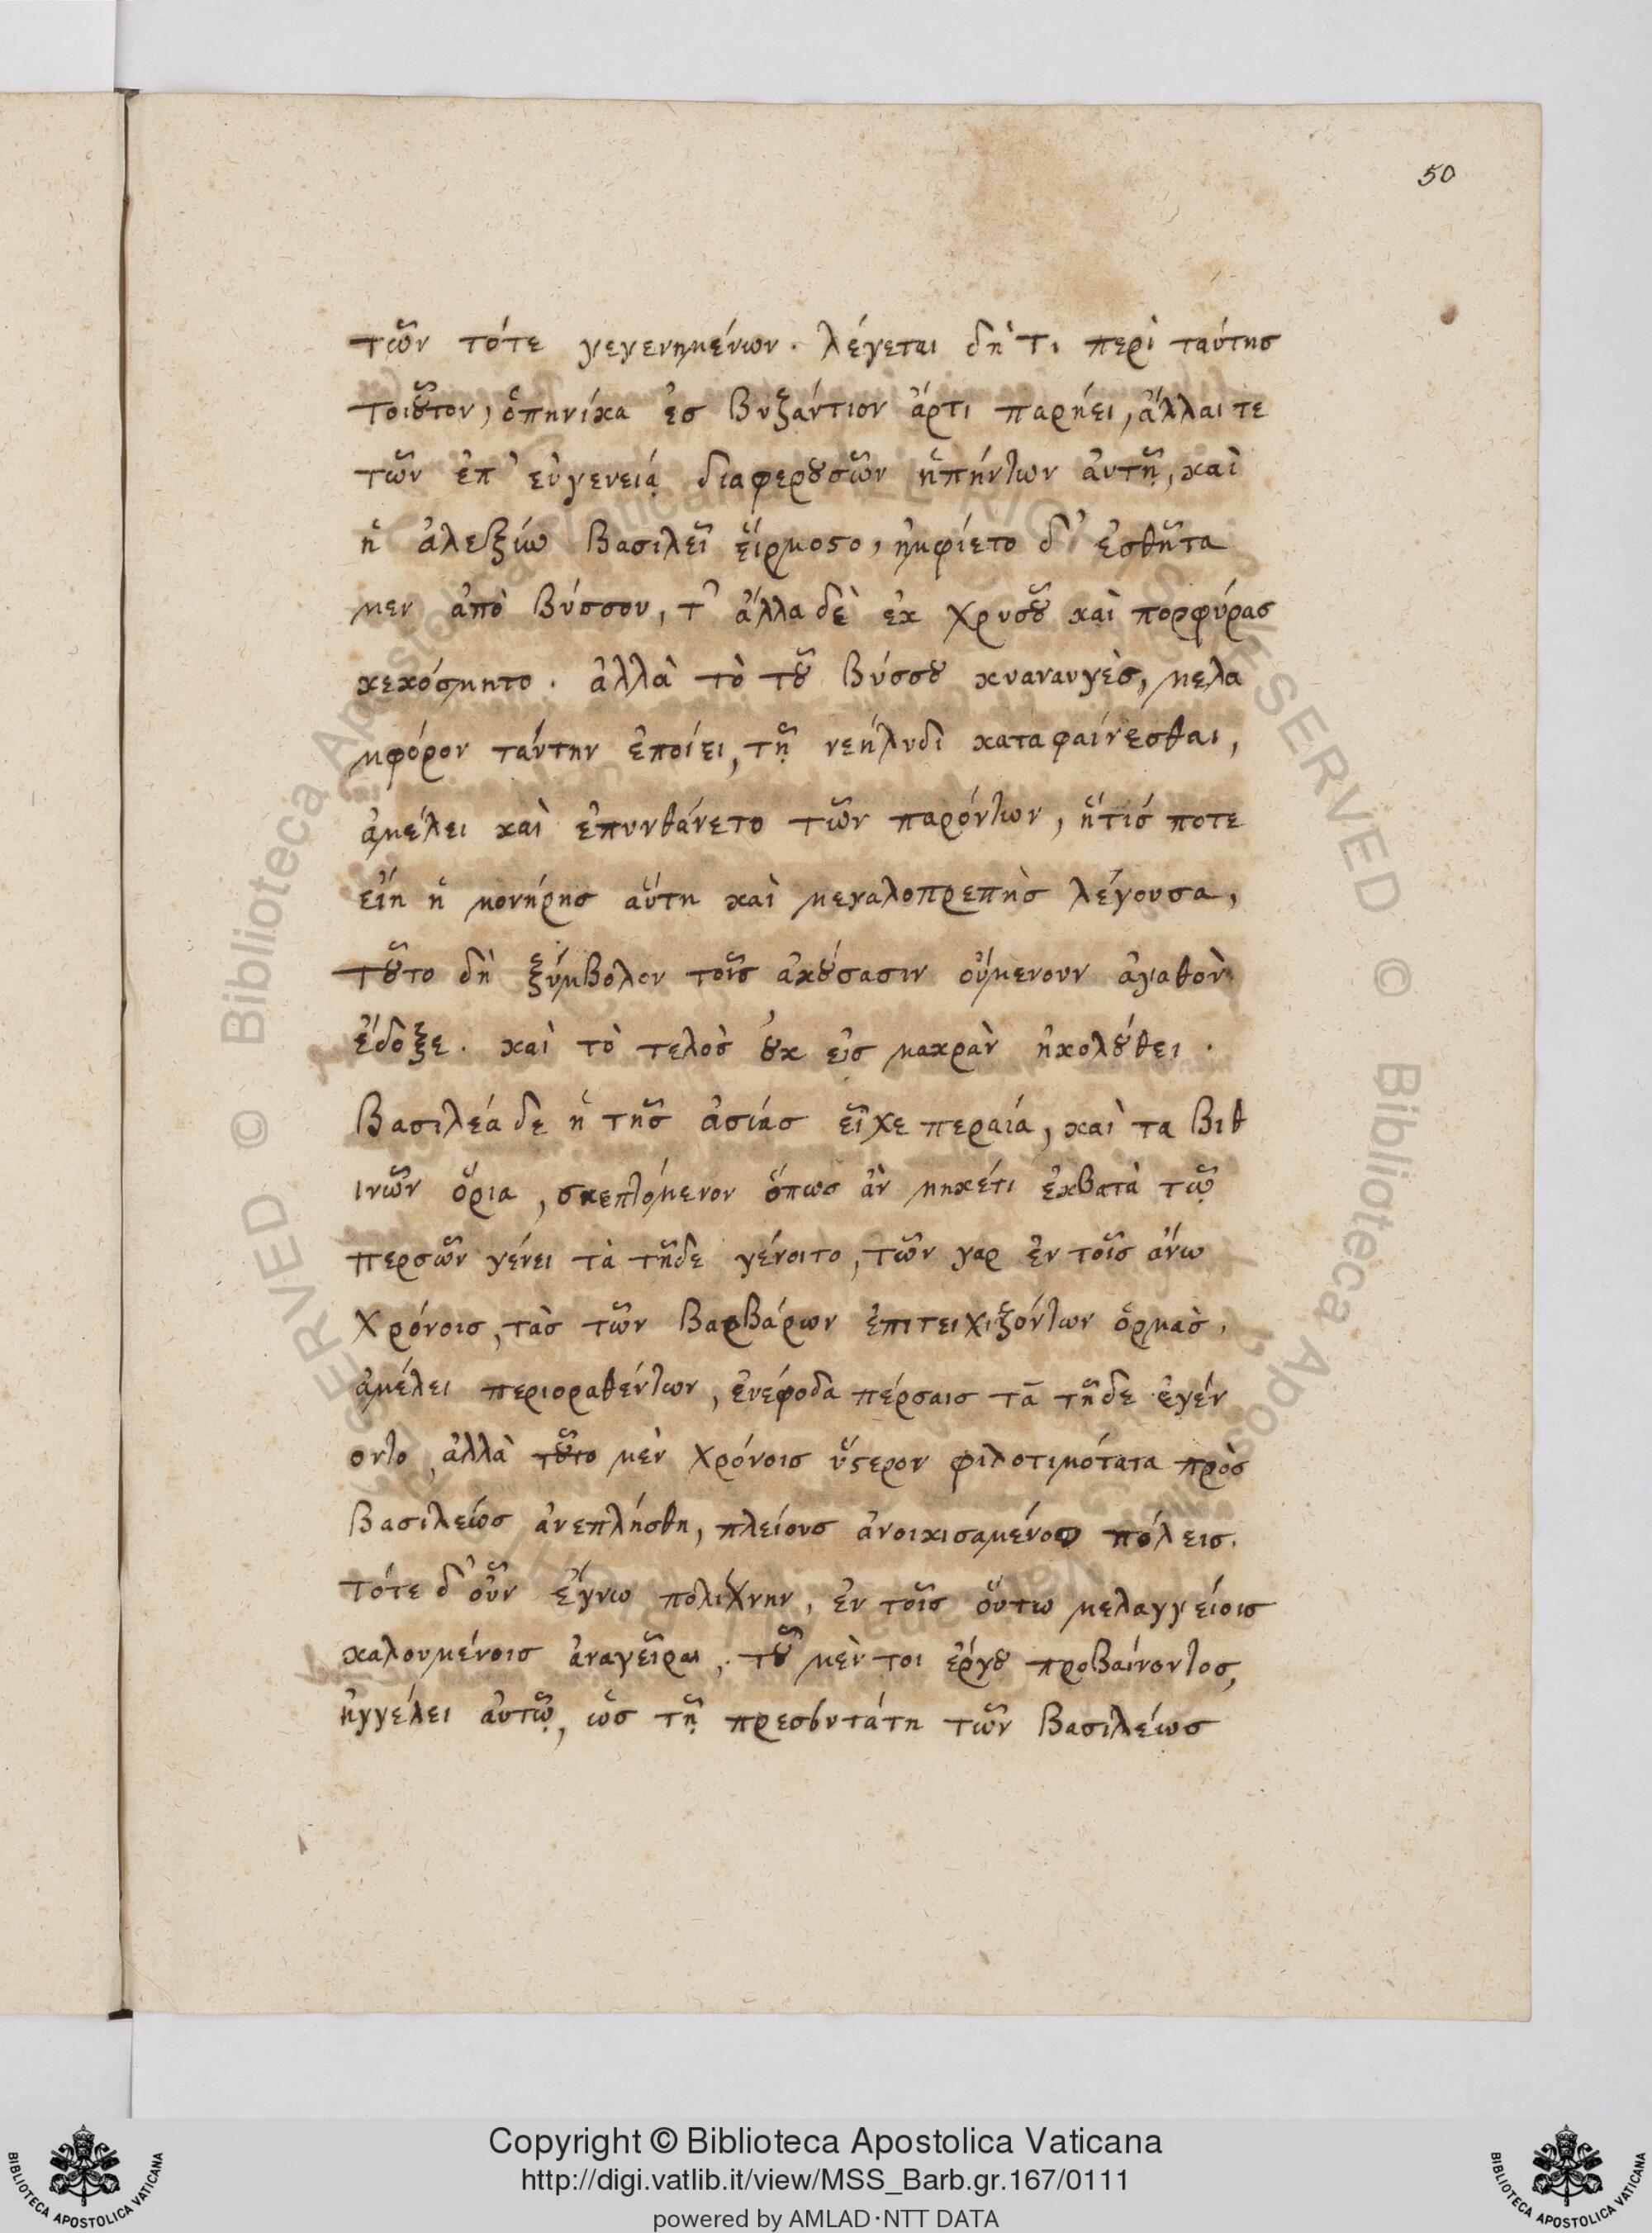 50
τῶν τότε γεγενημένων. λέγεται δή τι περὶ ταύτης
τοιοῦτον, ὁπηνίκα ἐς Βυζάντιον ἄρτι παρήει, ἄλλαι τε
τῶν ἐπ' εὐγενείᾳ διαφερουσῶν ἠπήντων ἀυτῇ, καὶ
ἡ ἀλεξίω Βασιλεῖ ἕιρμοστο, ἠμφίετο δ' ἐσθῆτα
μεν ἀπὸ Βύσσου, τ' ἄλλα δὲ ἐκ χρυσοῦ καὶ πορφύρας
κεκόσμητο. ἀλλὰ τὸ τοῦ Βύσσου κυαναυγὲς, μελα
μφόρον ταύτην ἐποίει, τῇ νεήλυδι καταφαίνεσθαι,
ἀμέλει καὶ ἐπυνθάνετο τῶν παρόντων, ἥτίς ποτε
εἴη ἡ μονήρης αὕτη καὶ μεγαλοπρεπὴς λέγουσα,
τοῦτο δὴ ξύμβολον τοῖς ἀκούσασιν οὐμενουν ἀγαθὸν
ἔδοξε. καὶ τὸ τελὸς οὐκ εἰς μακρὰν ἠκολούθει.
Βασιλέα δε ἡ τῆς ἀσίας εἶχε περαία, καὶ τα Βιθ
ινῶν ὅρια, σκεπτόμενον ὅπως ἀν μηκέτι ἐκβατὰ τῷ
περσῶν γένει τὰ τῇδε γένοιτο, τῶν γαρ ἐν τοῖς ἄνω
χρόνοις, τὰς τῶν Βαρβάρων ἐπιτειχιζόντων ὁρμὰς,
ἀμέλει περιοραθέντων, ἐνέφοδα πέρσαις τὰ τῇδε ἐγέν
οντο, ἀλλὰ τοῦτο μὲν χρόνοις ὕστερον φιλοτιμότατα πρὸς
Βασιλεώς ἀνεπλήσθη, πλείους ἀνοικισαμένου πόλεις.
τότε δ' οὖν ἔγνω πολίχνην, ἐν τοῖς ὅυτω μελαγγείοις
καλουμένοις ἀναγεῖραι, τοῦ μὲν τοι ἔργου προβαίνοντος,
ἠγγέλει ἀυτῷ, ὡς τῇ πρεσβυτάτη τῶν Βασιλέως
Copyright © Biblioteca Apostolica Vaticana
http://digi.vatlib.it/view/MSS_Barb.gr.167/0111
powered by AMLAD·NTT DATA